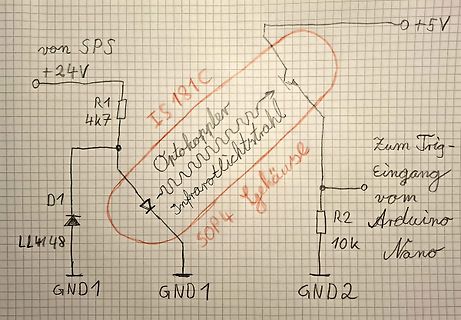 von SPS
+24V
R1
4k7
D1
LL4148
GND1
GND1
IS181C
Optokoppler
Infrarotlichtstrahl
SOP4 Gehäuse
+5V
R2
10k
GND2
Zum Trig-
Eingang
vom
Arduino
Nano